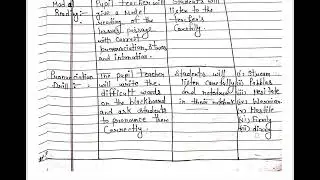 Model Pupil teacher will Students will
Reading:- give a model listen to the
reading of the teacher's
lesson passage carefully
with correct
pronunciation, stress
and intonation.
Pronunciation The pupil teacher Students will (i) Stream
Drill:- will write the listen carefully (ii) Pebbles
difficult words and notedown (iii) Hesitate
on the blackboard in their notebook (iv) Warrior
and ask students (v) Hostile
to pronounce them (vi) Firmly
Correctly.